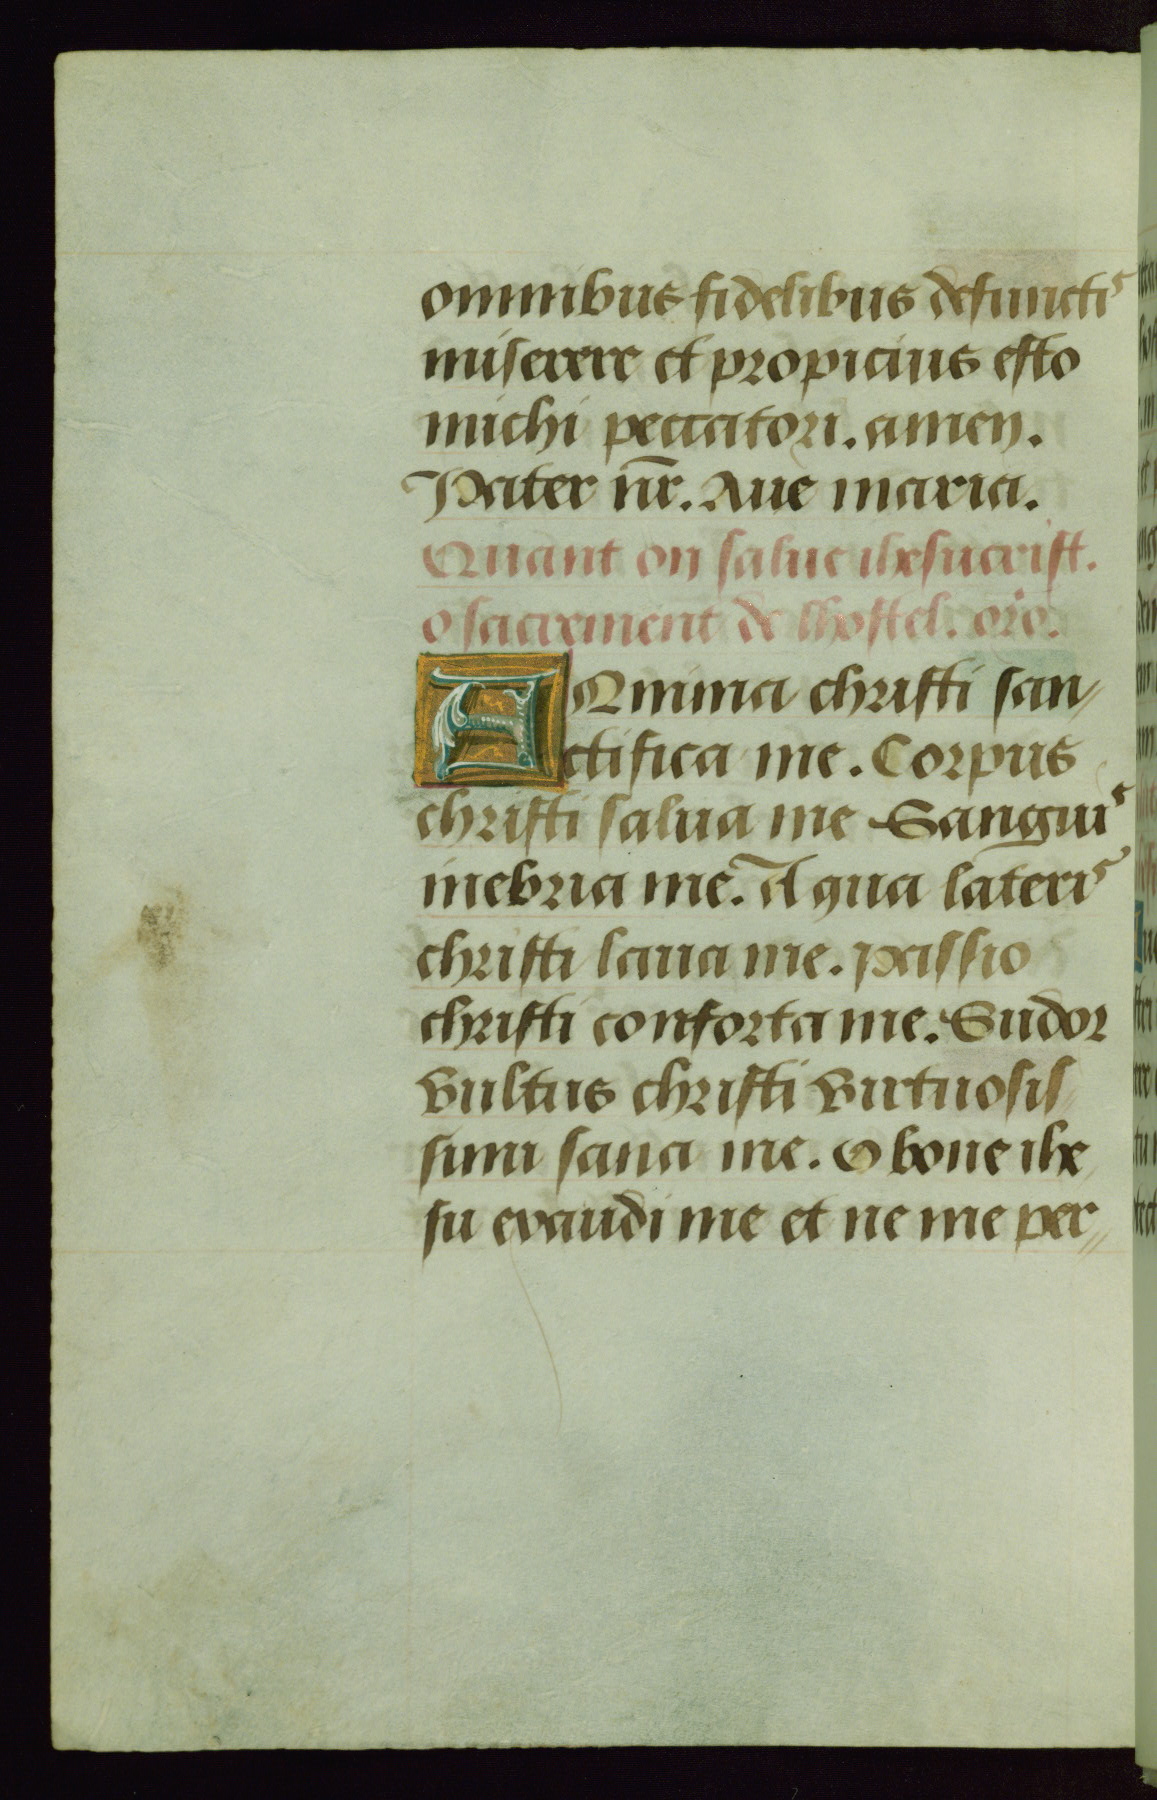 omnibus fidelibus defunctis
miserere et propicius esto
michi peccatori. amen.
Pater nr̄. Aue maria.
Quant on salue ihesucrist.
o sacrement de lhostel. oro.
ANnima christi san⸗
ctifica me. Corpus
christi salua me Sanguis
inebria me. Aqua lateris
christi laua me. passio
christi conforta me. Sudor
vultus christi virtuosis
simi sana me. O bone ihe
su exaudi me et ne me per⸗